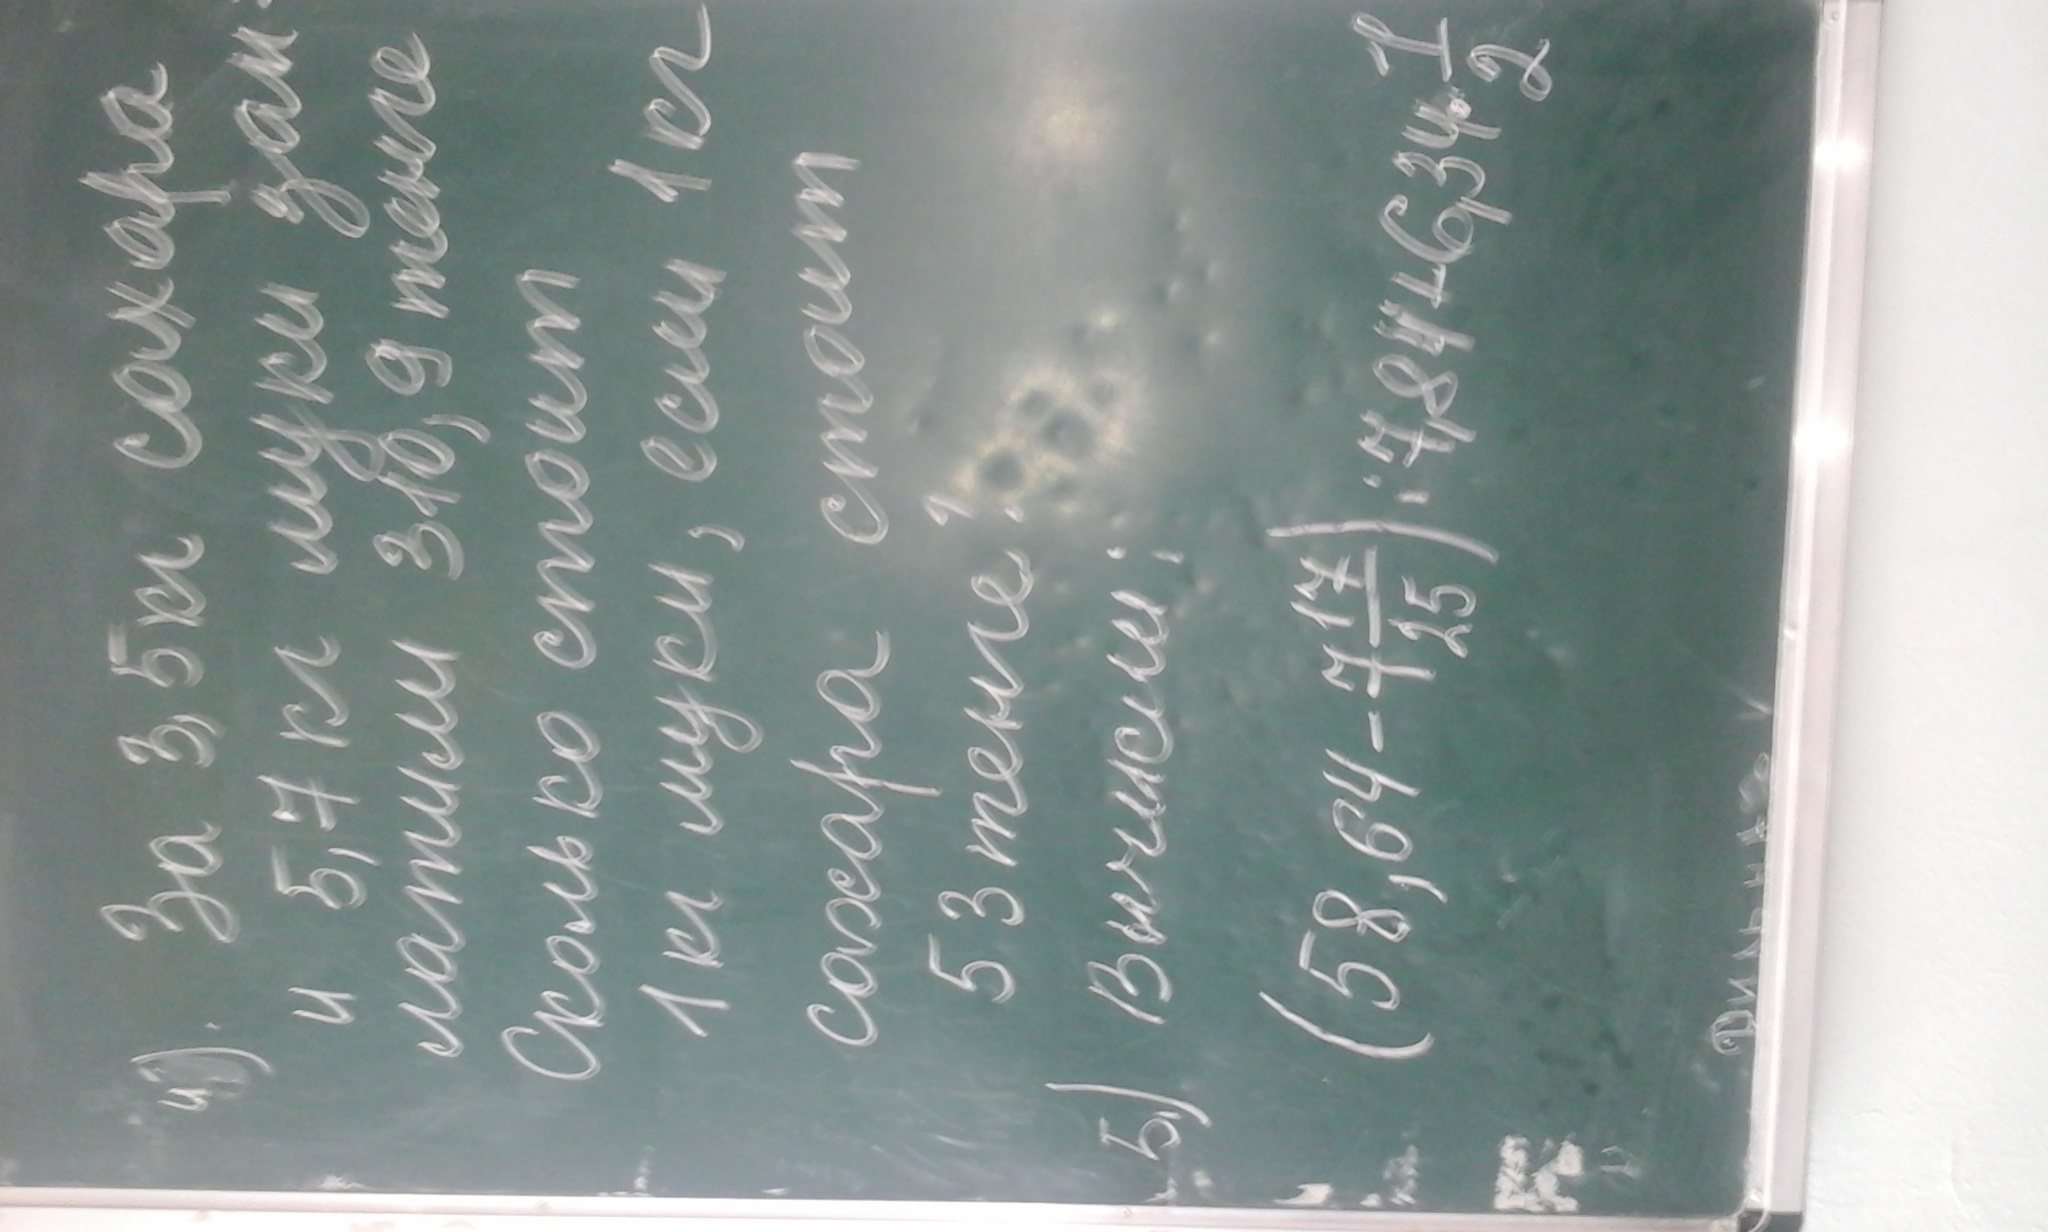 4). За 3,5кг сахара
и 5,7 кг муки зап-
латили 310,9 тенге
Сколько стоит
1 кг муки, если 1 кг
сахара стоит
53 тенге?
5) Вычисли:
(58,64 - 7 17/25) : 7,84 + 6,34 · 1/2
Динь